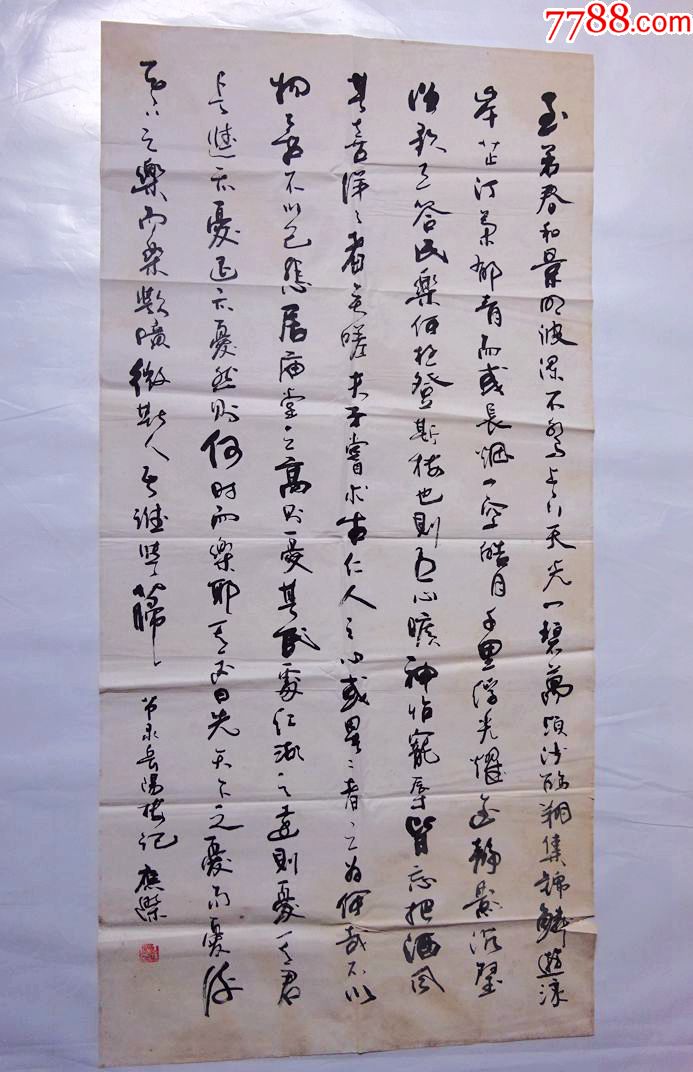 7788.com
至若春和景明波澜不惊上下天光一碧萬頃沙鸥翔集錦鱗遊泳
岸芷汀兰郁青而或長烟一空皓月千里浮光耀金靜影沉璧
渔歌互答此樂何极登斯楼也則有心曠神怡寵辱皆忘把酒风
其喜洋々者矣嗟夫予嘗求古仁人之心或異二者之为何哉不以
物喜不以己悲居庙堂之高则憂其民處江湖之遠則憂其君
是進亦憂退亦憂然则何时而樂耶其必曰先天下之憂而憂後
天下之樂而樂歟噫微斯人吾谁與歸
节录岳陽楼记